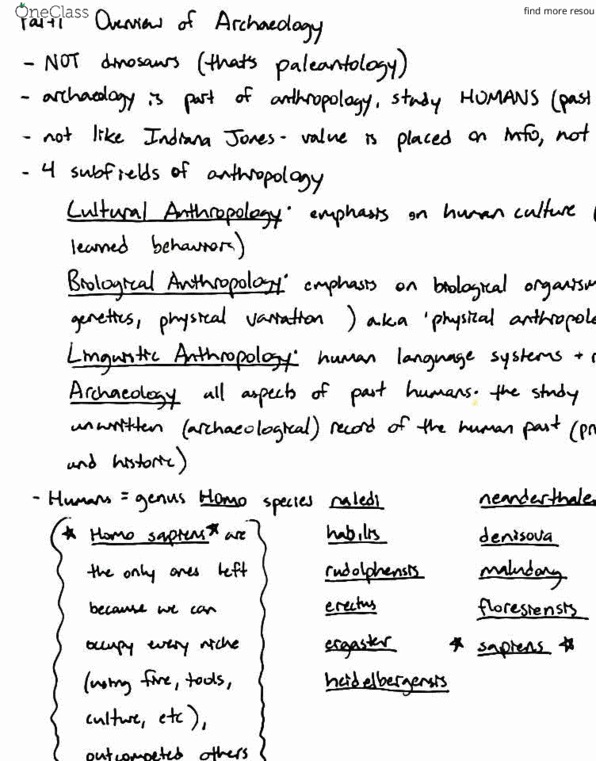 OneClass
find more resou
Part 1 Overview of Archaeology
- NOT dinosaurs (thats paleantology)
- archaeology is part of anthropology, study HUMANS (past
- not like Indiana Jones - value is placed on info, not
- 4 subfields of anthropology
Cultural Anthropology: emphasis on human culture (
learned behaviors)
Biological Anthropology: emphasis on biological organism
genetics, physical variation ) aka 'physical anthropolo
Linguistic Anthropology: human language systems +
Archaeology all aspects of past humans. the study
unwritten (archaeological) record of the human past (pr
and historic)
- Humans = genus Homo species naledi neanderthale
* Homo sapiens * are habilis denisova
the only ones left rudolphensis maludong
because we can erectus floresiensis
occupy every niche ergaster * sapiens *
(using fire, tools, heidelbergensis
culture, etc),
outcompeted others